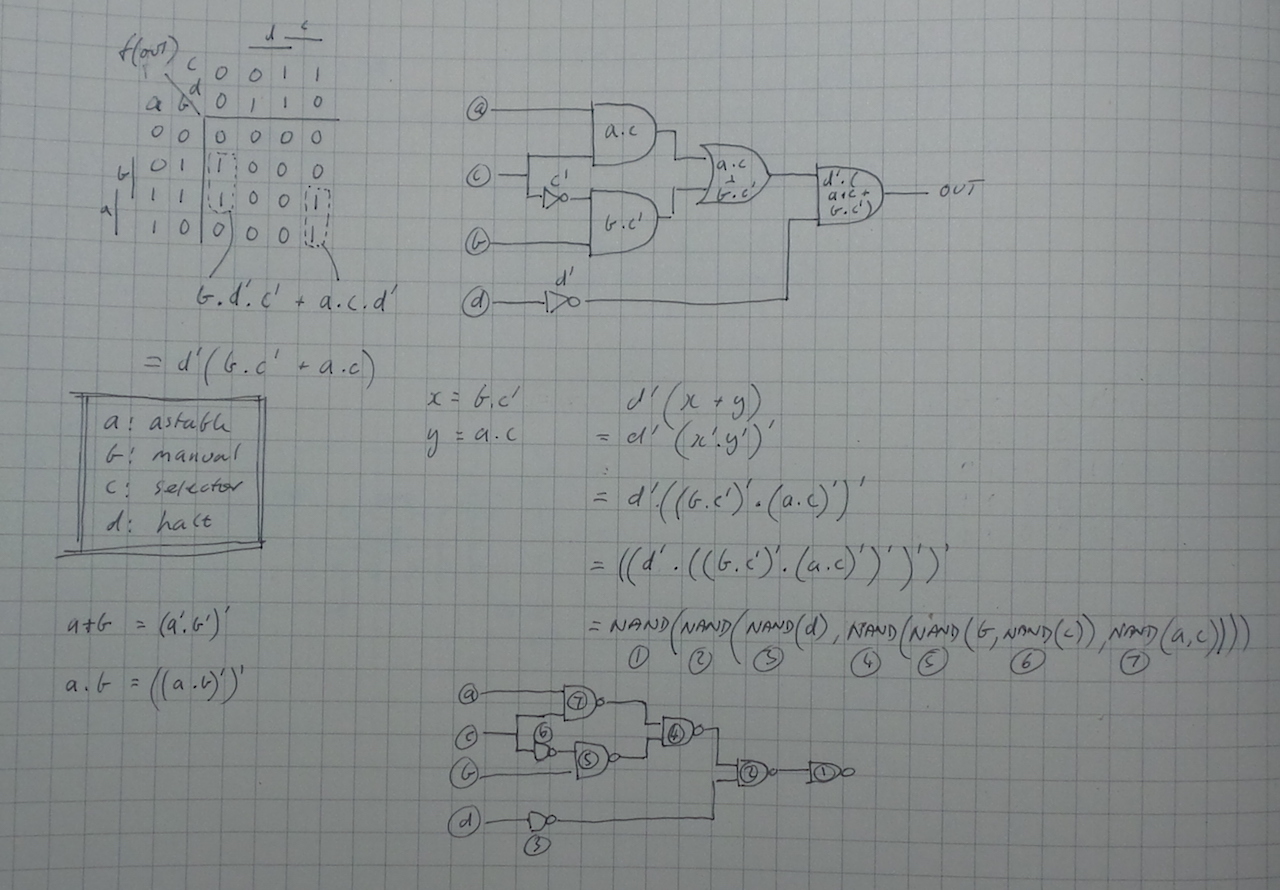 f(out)
d c
c 0 0 1 1
d
a b 0 1 1 0
0 0 0 0 0 0
b 0 1 1 0 0 0
a 1 1 1 0 0 1
1 0 0 0 0 1
b.d'.c' + a.c.d'
= d'(b.c' + a.c)
a: astable
b: manual
c: selector
d: halt
a+b = (a'.b')'
a.b = ((a.b)')'
a
a.c
c
c'
b.c'
b
d
d'
a.c
+
b.c'
d'.(
a.c +
b.c')
OUT
x = b.c'
y = a.c
d'(x + y)
= d' (x'.y')'
= d'.((b.c')'.(a.c)')'
= ((d' . ((b.c')'.(a.c)')')')'
= NAND(NAND(NAND(d), NAND(NAND(b, NAND(c)), NAND(a,c))))
1 2 3 4 5 6 7
a
7
c
6
4
5
b
2
1
d
3